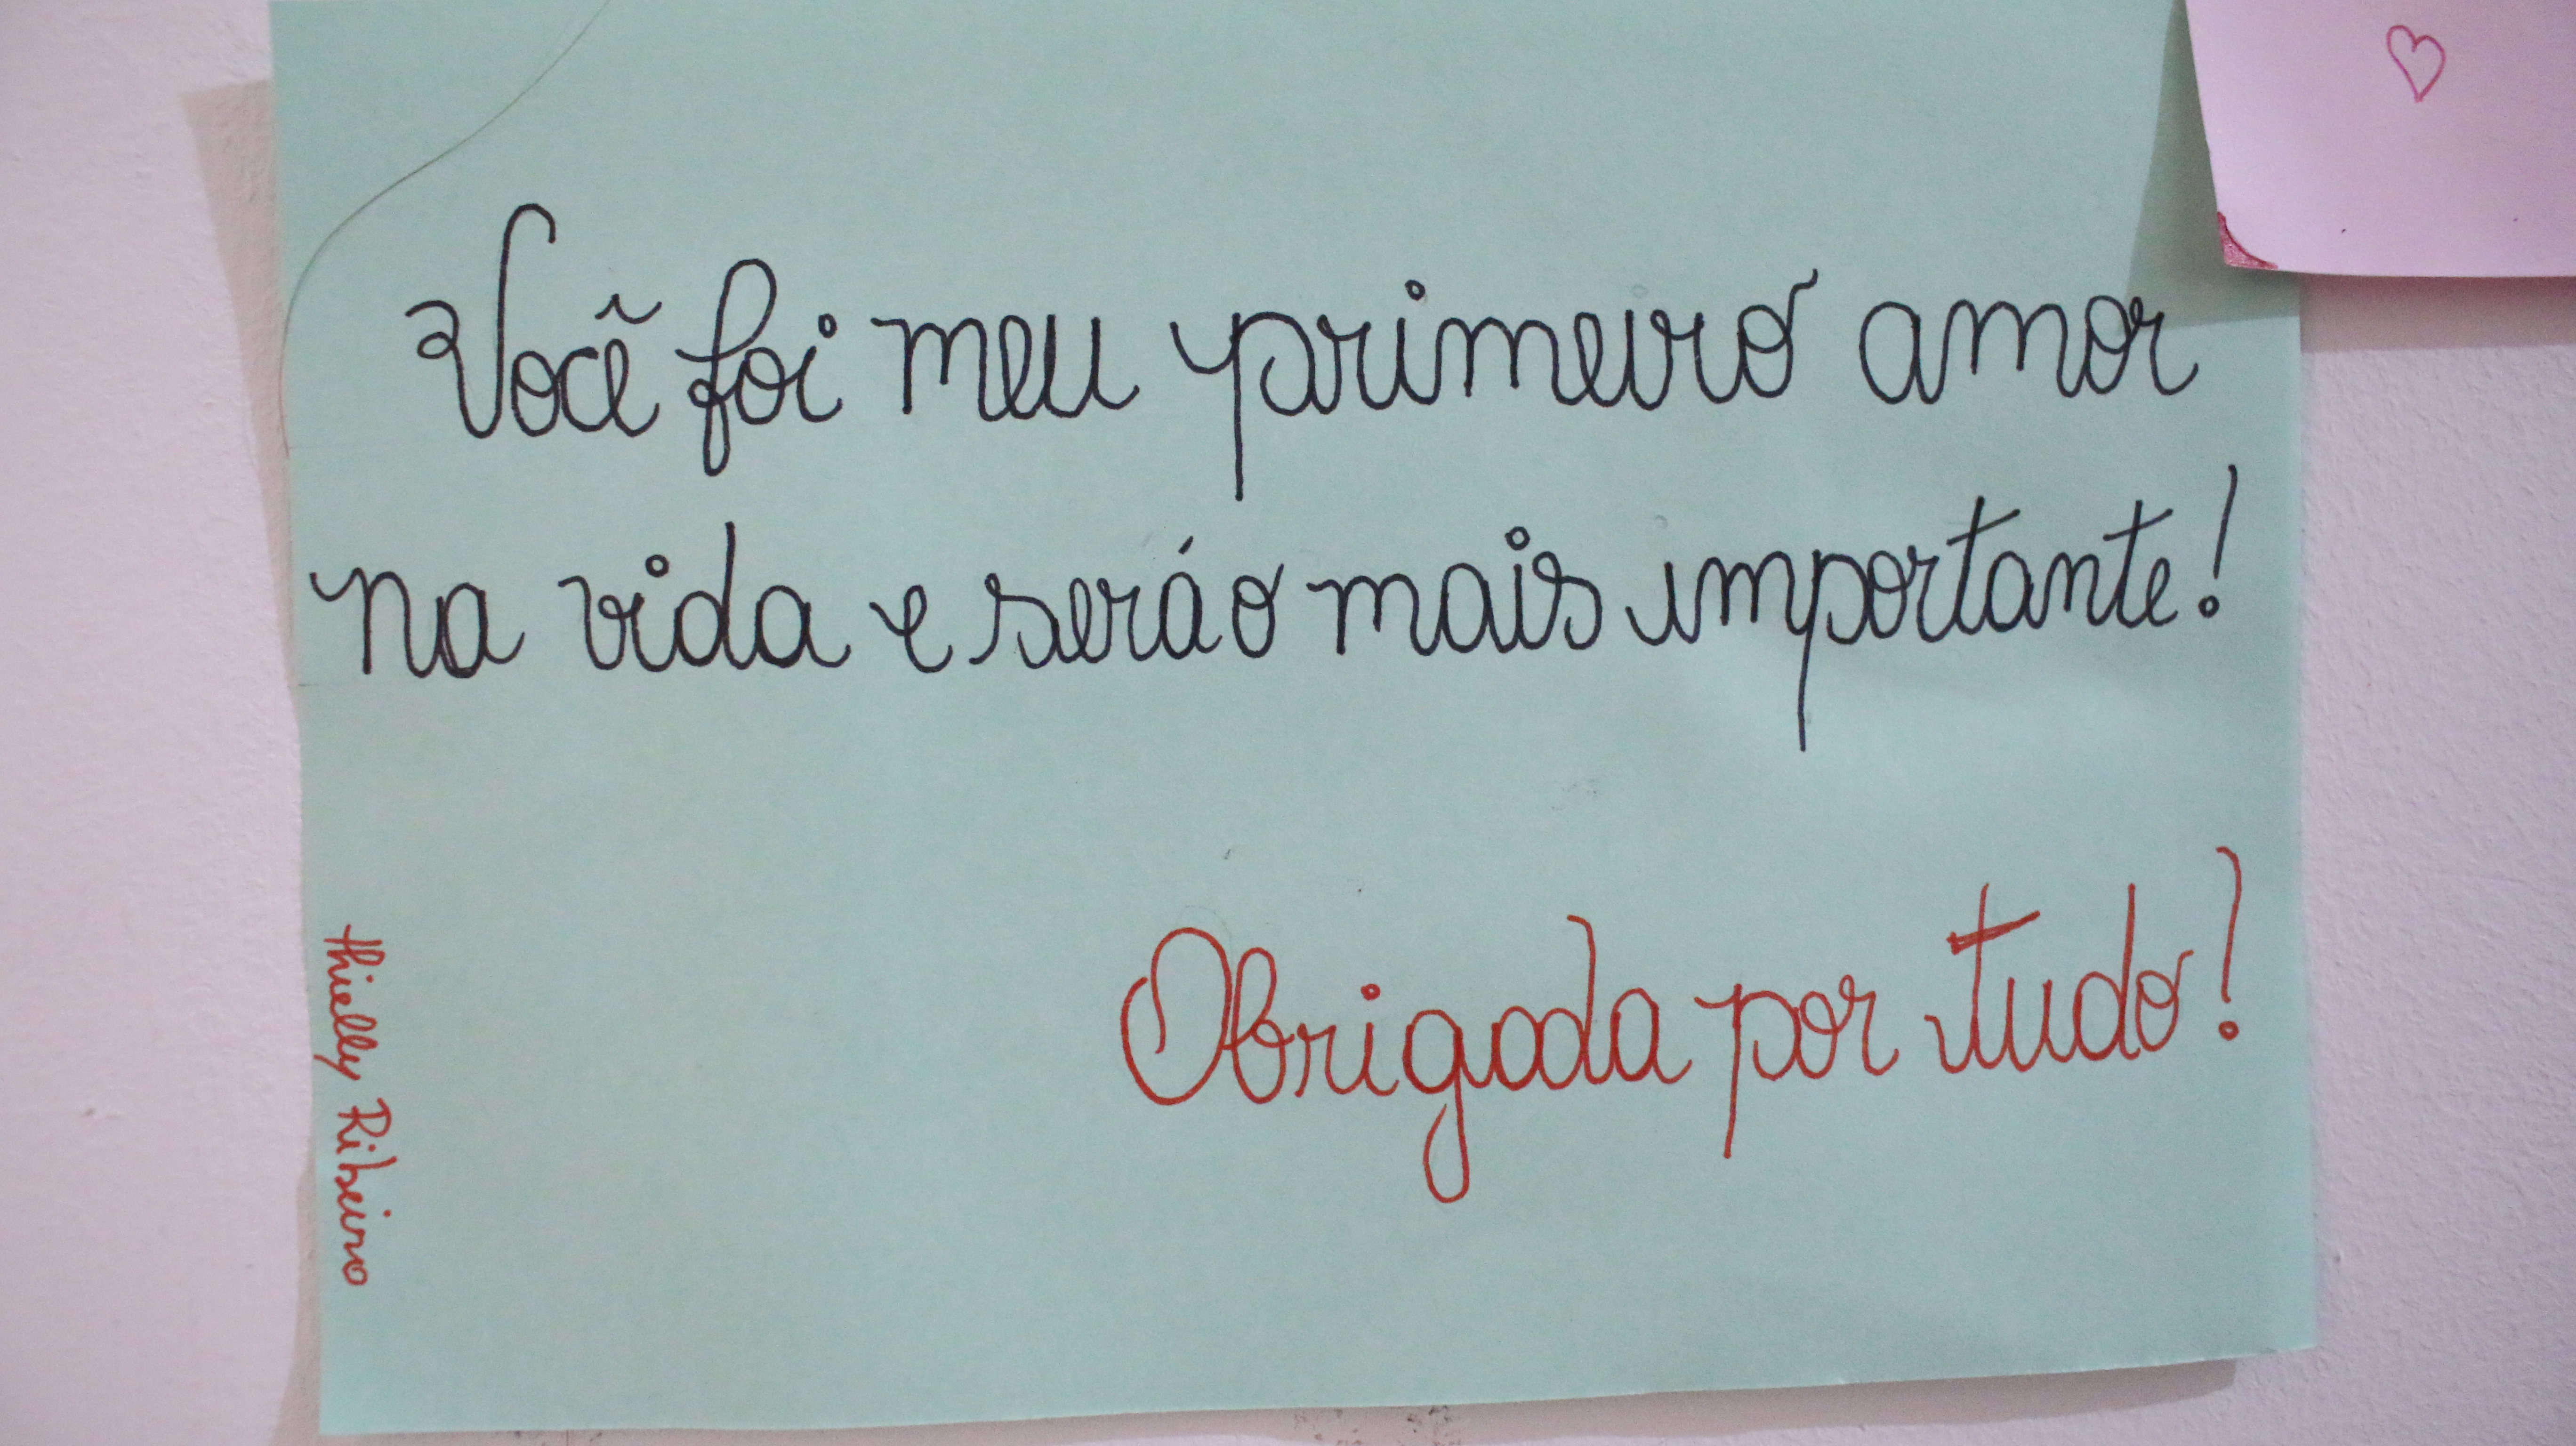 Você foi meu primeiro amor
na vida e será o mais importante!
Obrigada por tudo!
Thielly Ribeiro